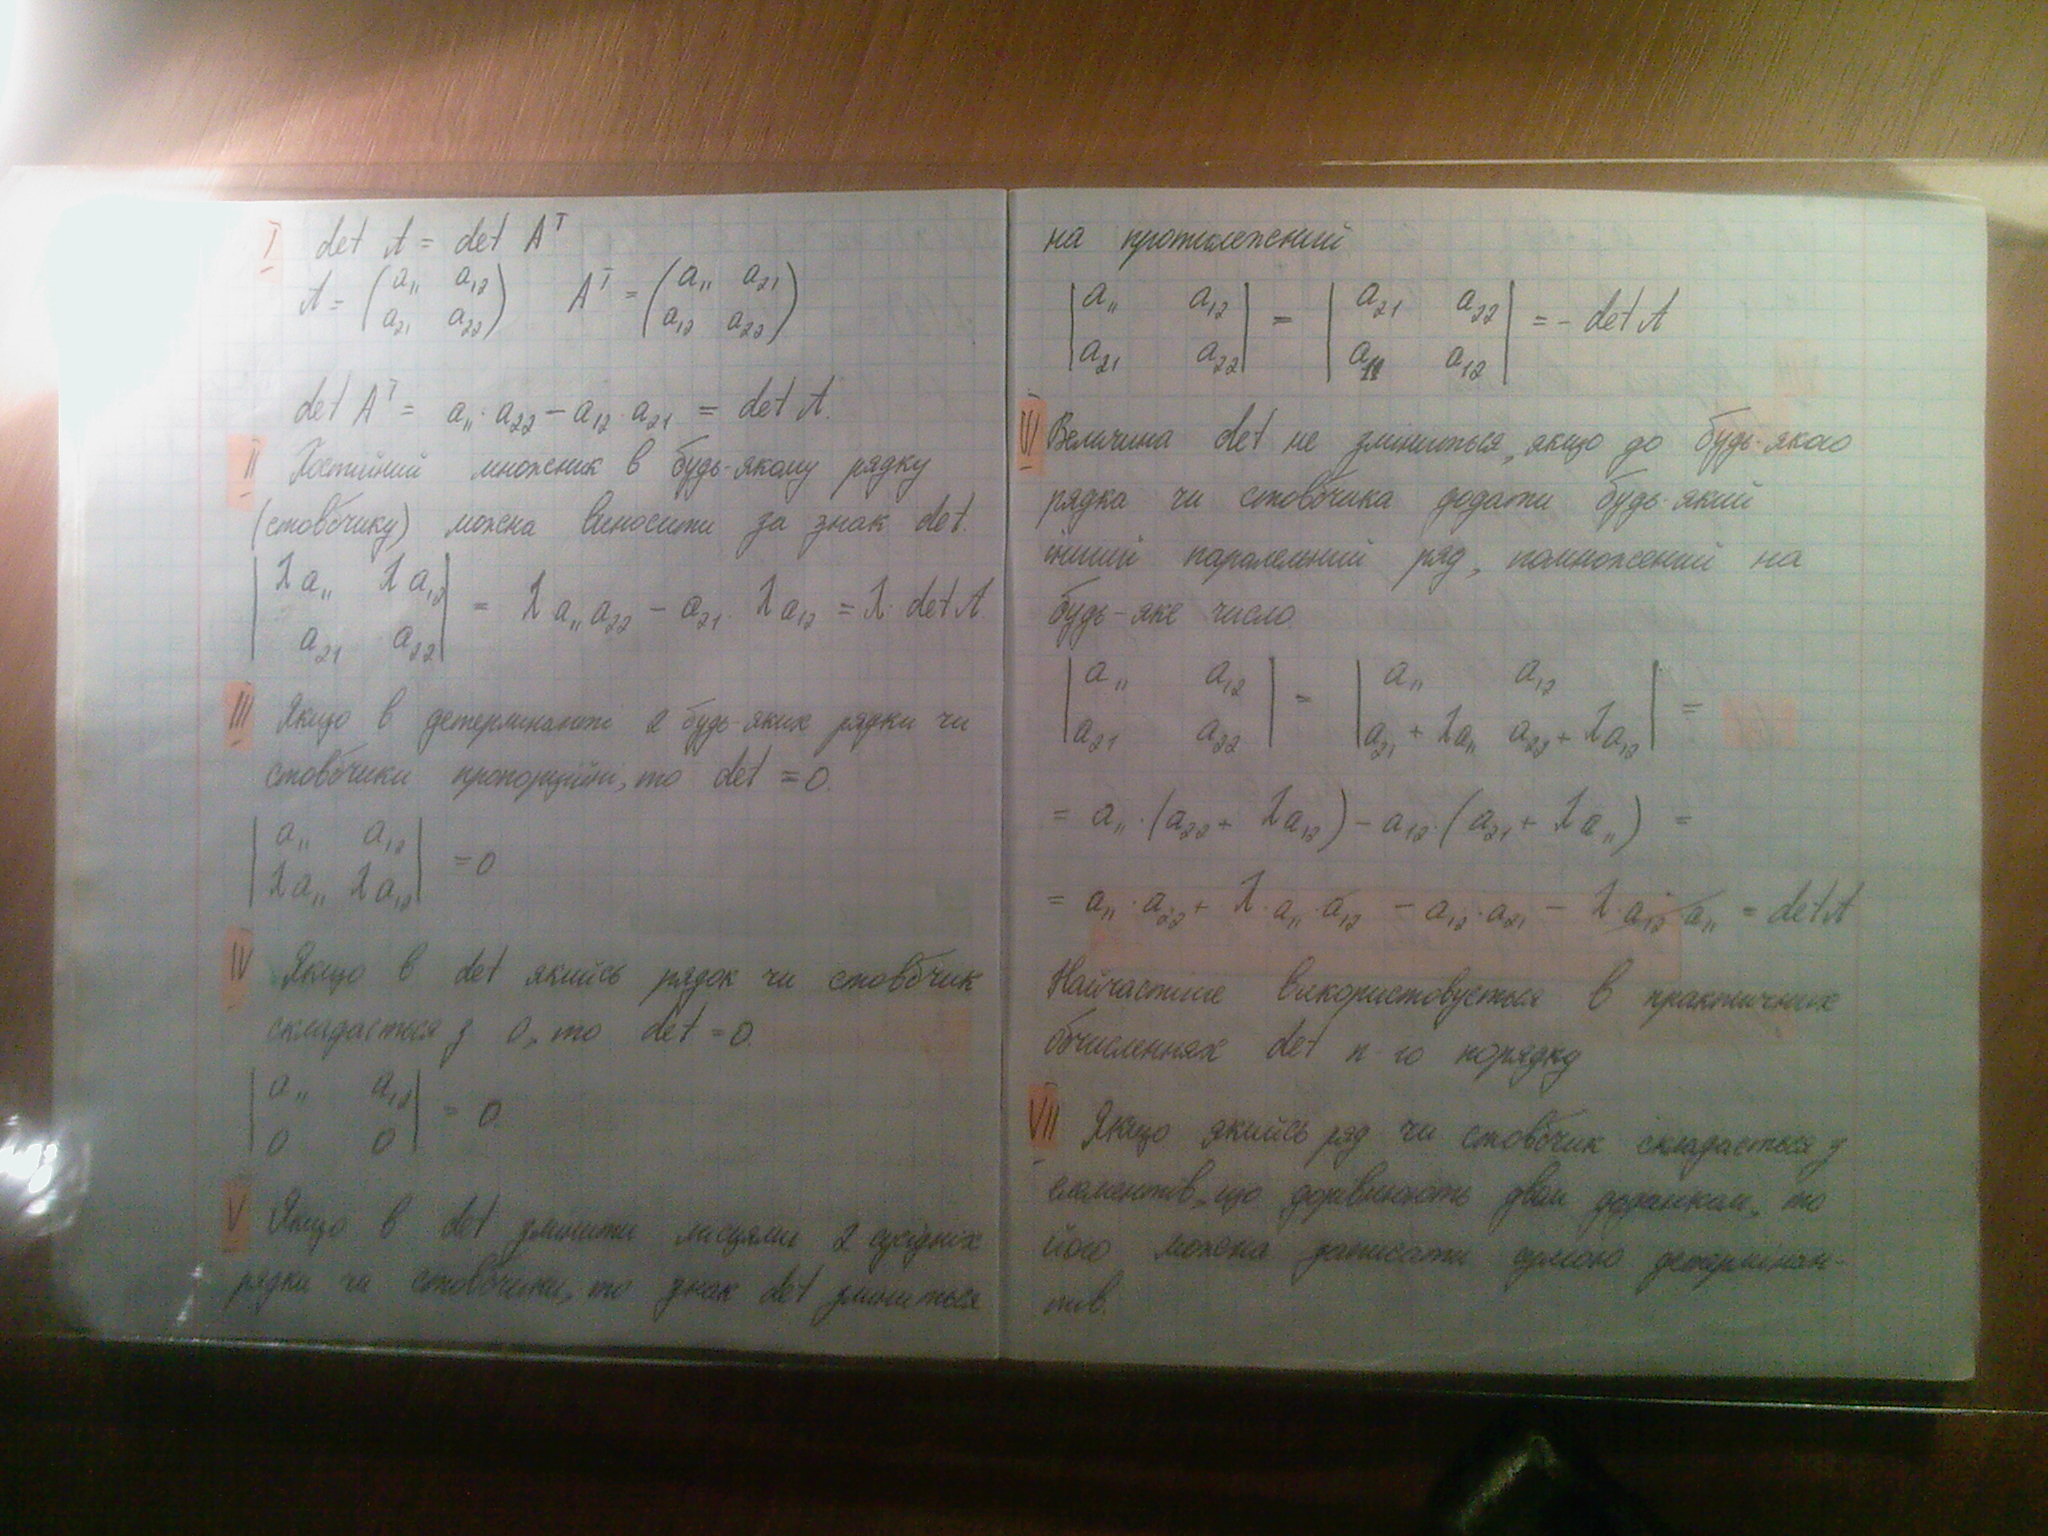 I det A = det Aᵀ
A = (a₁₁ a₁₂ Aᵀ = (a₁₁ a₂₁
a₂₁ a₂₂) a₁₂ a₂₂)
det Aᵀ = a₁₁·a₂₂ - a₁₂·a₂₁ = det A.
II Постійний множник в будь-якому рядку
(стовбчику) можна виносити за знак det.
|λa₁₁ λa₁₂|
= λa₁₁a₂₂ - a₂₁·λa₁₂ = λ·det A.
|a₂₁ a₂₂|
III Якщо в детермінанті 2 будь-яких рядки чи
стовбчики пропорційні, то det = 0.
|a₁₁ a₁₂|
= 0
|λa₁₁ λa₁₂|
IV Якщо в det якийсь рядок чи стовбчик
складається з 0, то det = 0.
|a₁₁ a₁₂|
= 0.
|0 0|
V Якщо в det змінити місцями 2 сусідніх
рядки чи стовбчики, то знак det зміниться
на протилежний
|a₁₁ a₁₂| |a₂₁ a₂₂|
= = - det A
|a₂₁ a₂₂| |a₁₁ a₁₂|
VI Величина det не зміниться, якщо до будь-якого
рядка чи стовбчика додати будь-який
інший паралельний ряд, помножений на
будь-яке число.
|a₁₁ a₁₂| |a₁₁ a₁₂|
= =
|a₂₁ a₂₂| |a₂₁ + λa₁₁ a₂₂ + λa₁₂|
= a₁₁·(a₂₂ + λa₁₂) - a₁₂·(a₂₁ + λa₁₁) =
= a₁₁·a₂₂ + λ·a₁₁·a₁₂ - a₁₂·a₂₁ - λ·a₁₂·a₁₁ = det A
Найчастіше використовується в практичних
обчисленнях det n-го порядку
VII Якщо якийсь ряд чи стовбчик складається з
елементів, що дорівнюють двом доданкам, то
його можна записати сумою детермінан-
тів.